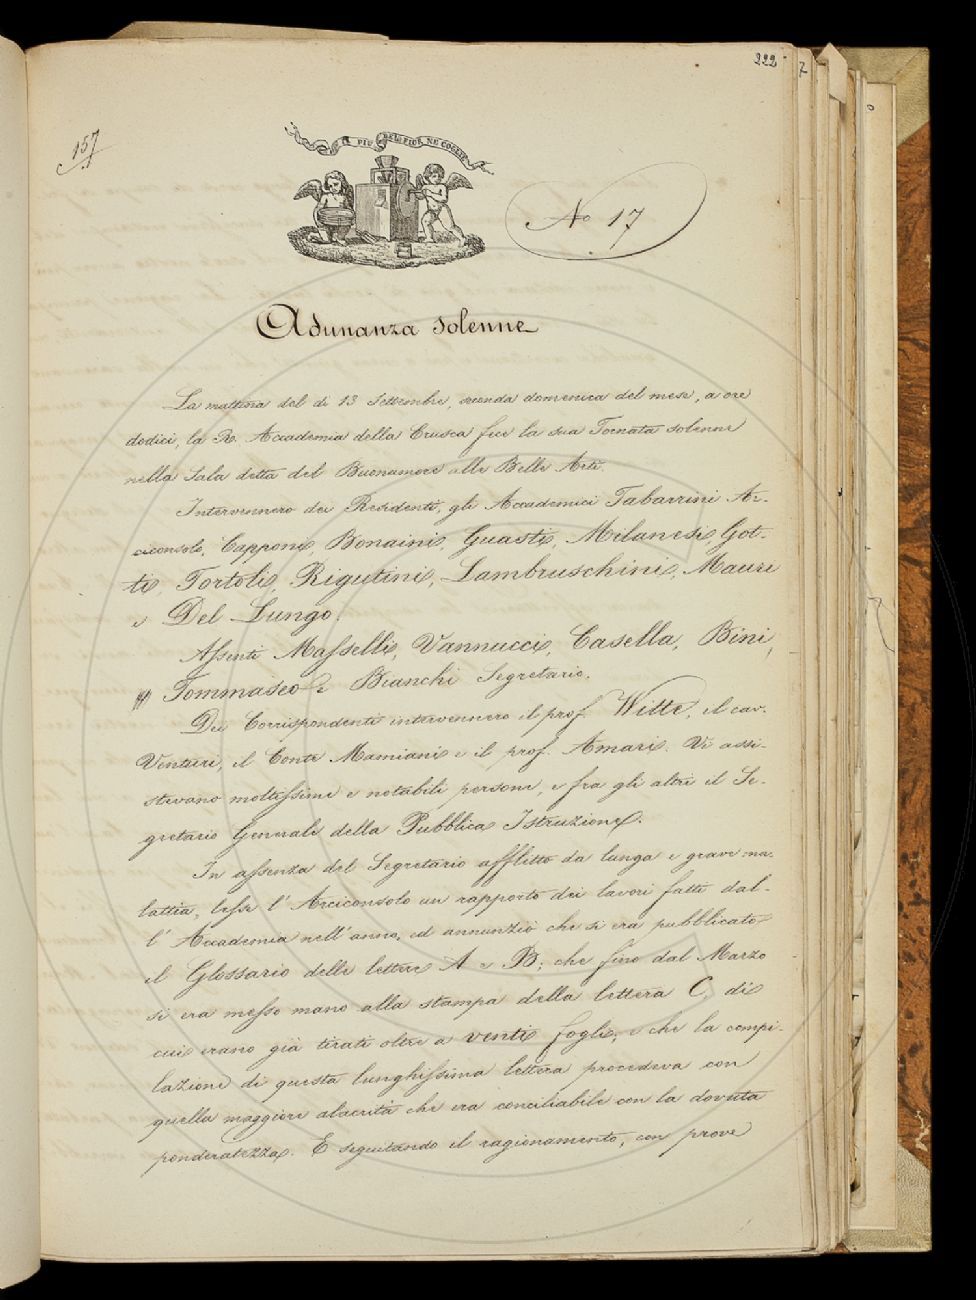 222
7
157
IL PIÙ BEL FIOR NE COGLIE
No 17
Adunanza solenne
La mattina del dì 13 Settembre, seconda domenica del mese, a ore
dodici, la R. Accademia della Crusca fece la sua Tornata solenne
nella Sala detta del Buonumore alle Belle Arti.
Intervennero dei Residenti, gli Accademici Tabarrini Ar-
ciconsolo, Capponi, Bonaini, Guasti, Milanesi, Got-
ti, Tortoli, Rigutini, Lambruschini, Mauri
e Del Lungo.
Assenti Masselli, Vannucci, Casella, Bini,
Tommaseo e Bianchi Segretario.
Dei Corrispondenti intervennero il prof. Witte, il cav.
Venturi, il Conte Mamiani e il prof. Amari. Vi assi-
stevano moltissime e notabili persone, e fra gli altri il Se-
gretario Generale della Pubblica Istruzione.
In assenza del Segretario afflitto da lunga e grave ma-
lattia, lesse l'Arciconsolo un rapporto dei lavori fatti dal-
l'Accademia nell'anno, ed annunziò che si era pubblicato
il Glossario delle lettere A e B; che fino dal Marzo
si era messo mano alla stampa della lettera C, di
cui erano già tirati oltre a venti fogli; e che la compi-
lazione di questa lunghissima lettera procedeva con
quella maggiore alacrità che era conciliabile con la dovuta
ponderatezza. E seguitando il ragionamento, con prove